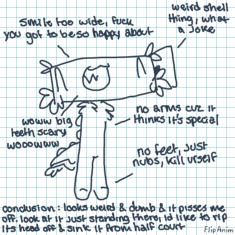 smile too wide, fuck
you got to be so happy about
weird shell
thing, what
a joke
W
woww big
teeth scary
wooowww
no arms cuz it
thinks it's special
no feet, just
nubs, kill urself
conclusion: looks weird & dumb & it pisses me
off. look at it just standing there, id like to rip
it's head off & sink it from half court
FlipAnim